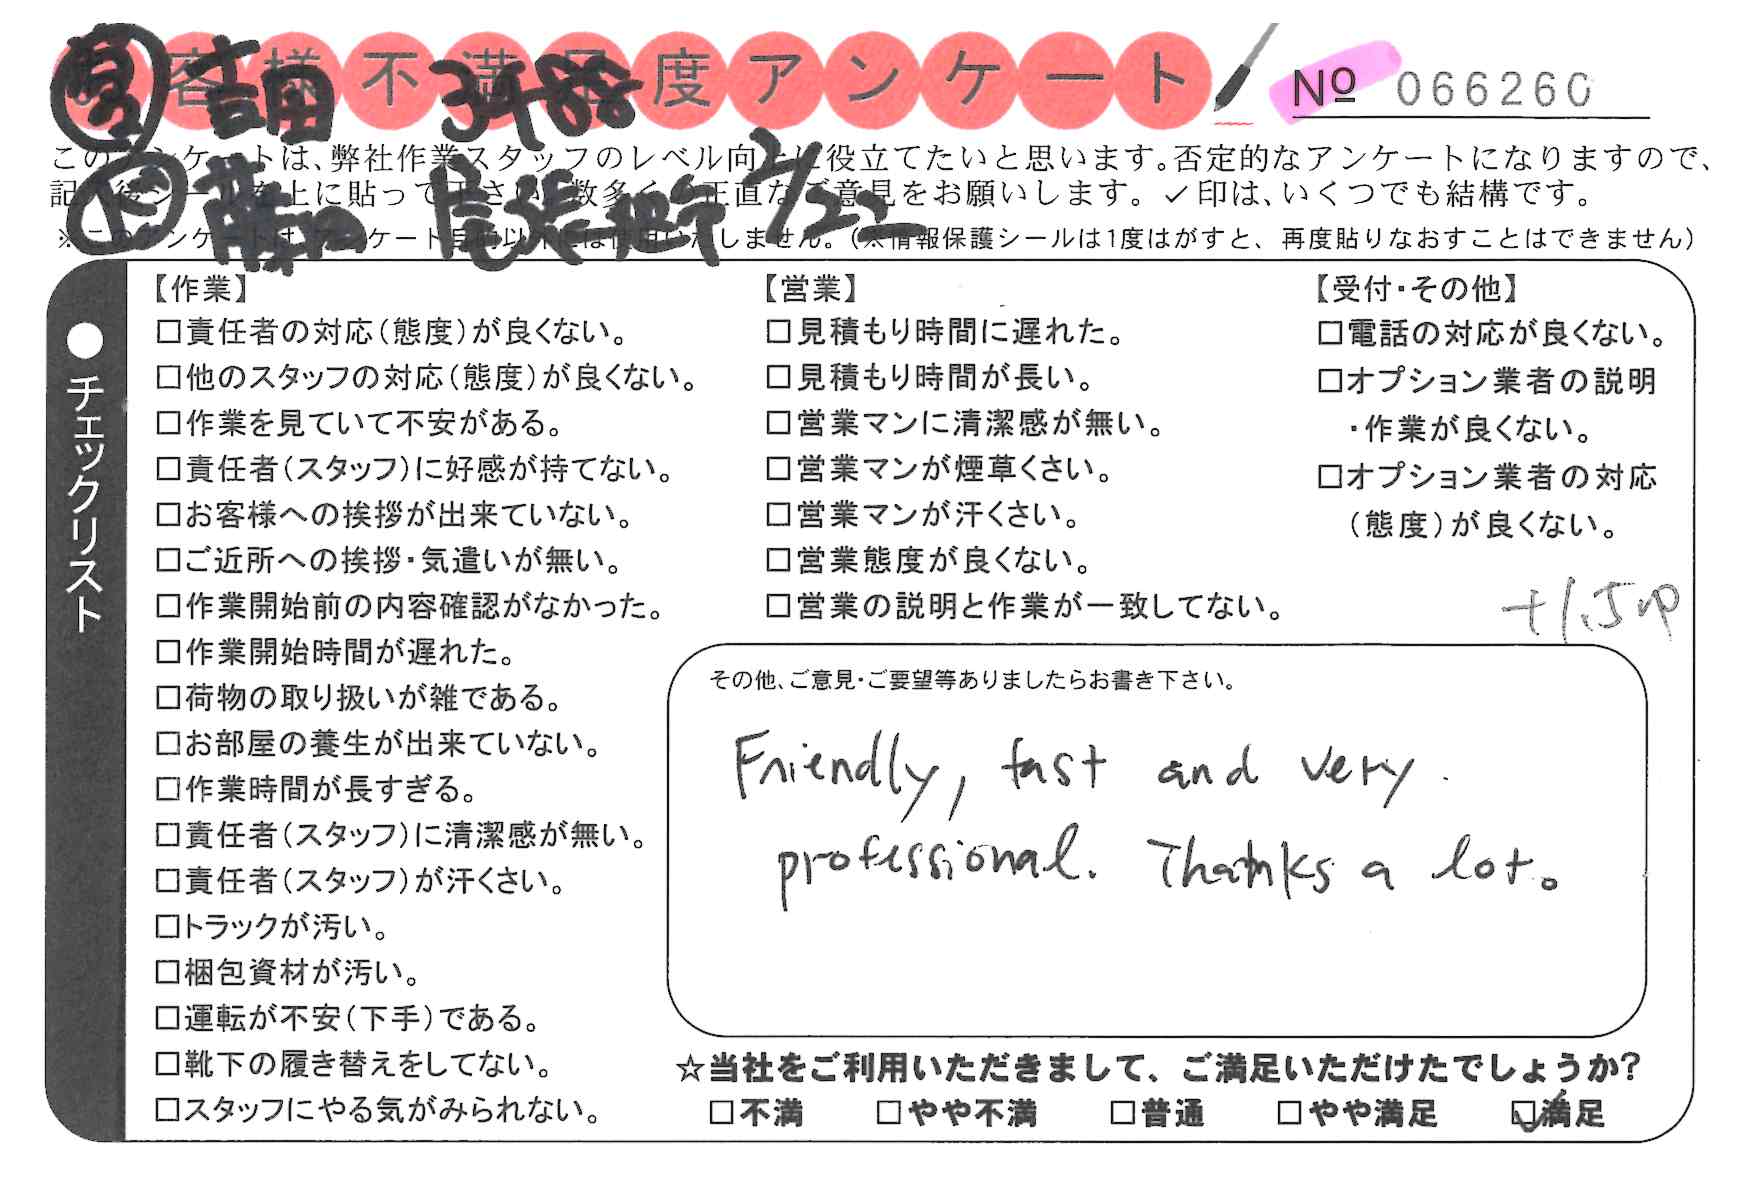 お客様不満足度アンケート
吉田
No 066260
このアンケートは、弊社作業スタッフのレベル向上に役立てたいと思います。否定的なアンケートになりますので、
記入後シールを上に貼って下さい。数多くの正直なご意見をお願いします。✓印は、いくつでも結構です。
2/22
※このアンケートは、アンケート目的以外には使用いたしません。(※情報保護シールは1度はがすと、再度貼りなおすことはできません)
●チェックリスト
【作業】
□責任者の対応(態度)が良くない。
□他のスタッフの対応(態度)が良くない。
□作業を見ていて不安がある。
□責任者(スタッフ)に好感が持てない。
□お客様への挨拶が出来ていない。
□ご近所への挨拶・気遣いが無い。
□作業開始前の内容確認がなかった。
□作業開始時間が遅れた。
□荷物の取り扱いが雑である。
□お部屋の養生が出来ていない。
□作業時間が長すぎる。
□責任者(スタッフ)に清潔感が無い。
□責任者(スタッフ)が汗くさい。
□トラックが汚い。
□梱包資材が汚い。
□運転が不安(下手)である。
□靴下の履き替えをしてない。
□スタッフにやる気がみられない。
【営業】
□見積もり時間に遅れた。
□見積もり時間が長い。
□営業マンに清潔感が無い。
□営業マンが煙草くさい。
□営業マンが汗くさい。
□営業態度が良くない。
□営業の説明と作業が一致してない。
【受付・その他】
□電話の対応が良くない。
□オプション業者の説明
・作業が良くない。
□オプション業者の対応
(態度)が良くない。
+1.5 up
その他、ご意見・ご要望等ありましたらお書き下さい。
Friendly, fast and very
professional. Thanks a lot。
☆当社をご利用いただきまして、ご満足いただけたでしょうか?
□不満 □やや不満 □普通 □やや満足 ☑満足